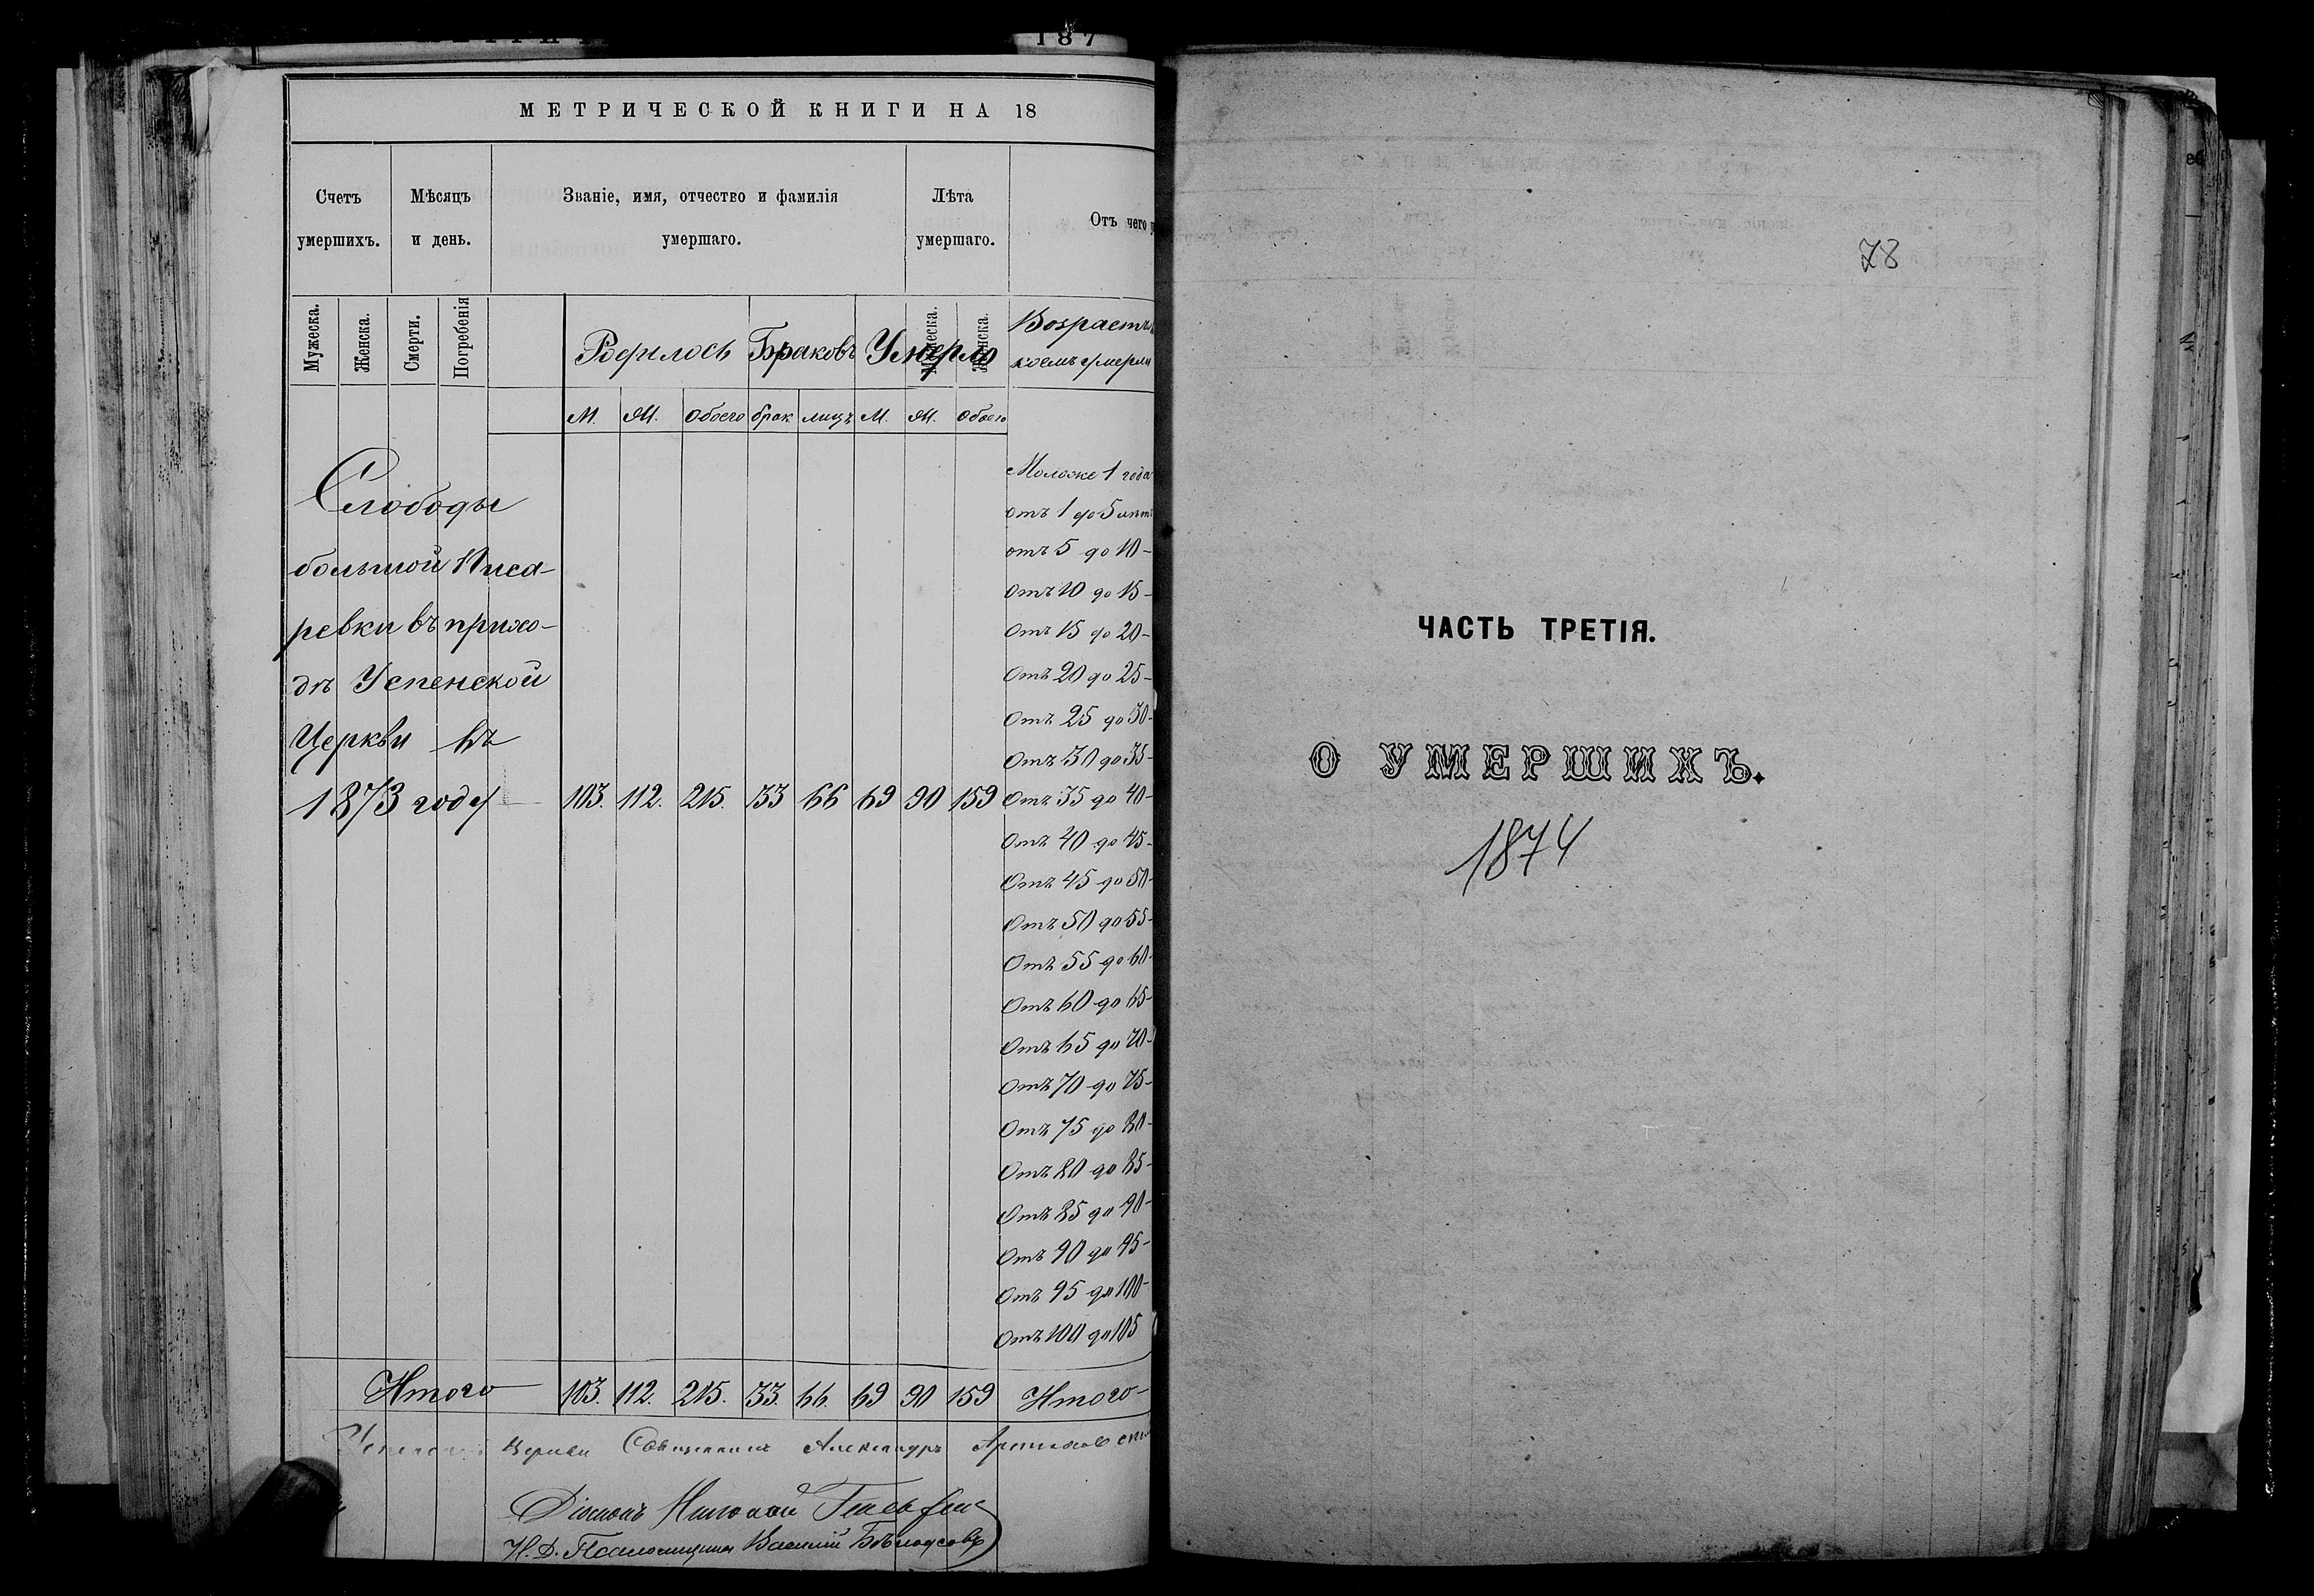 187
МЕТРИЧЕСКОЙ КНИГИ НА 18
Счетъ умершихъ.
Мѣсяцъ и день.
Званіе, имя, отчество и фамилія умершаго.
Лѣта умершаго.
Отъ чего
Мужеска.
Женска.
Смерти.
Погребенія
Родилось
Браковъ
Умерло
Женска.
Возрастъ
коемъ умерли
М. Ж. Обоего брак лицъ М. Ж. Обоего
Моложе 1 года
отъ 1 до 5 лѣтъ
отъ 5 до 10-
Отъ 10 до 15-
Отъ 15 до 20-
Отъ 20 до 25-
Отъ 25 до 30-
Отъ 30 до 35-
Слободы
большой Писа-
ревки въ прихо-
дѣ Успенской
Церкви въ
1873 году 103. 112. 215. 33 66 69 90 159 Отъ 35 до 40-
Отъ 40 до 45-
Отъ 45 до 50-
Отъ 50 до 55-
Отъ 55 до 60-
Отъ 60 до 65-
Отъ 65 до 70-
Отъ 70 до 75-
Отъ 75 до 80-
Отъ 80 до 85-
Отъ 85 до 90-
Отъ 90 до 95-
Отъ 95 до 100-
Отъ 100 до 105
Итого 103. 112. 215. 33. 66. 69 90 159 Итого-
Церкви Священникъ Александръ
Діаконъ Николай
И. Д. Псаломщика Василій Бѣлоусовъ
78
ЧАСТЬ ТРЕТІЯ.
О УМЕРШИХЪ.
1874